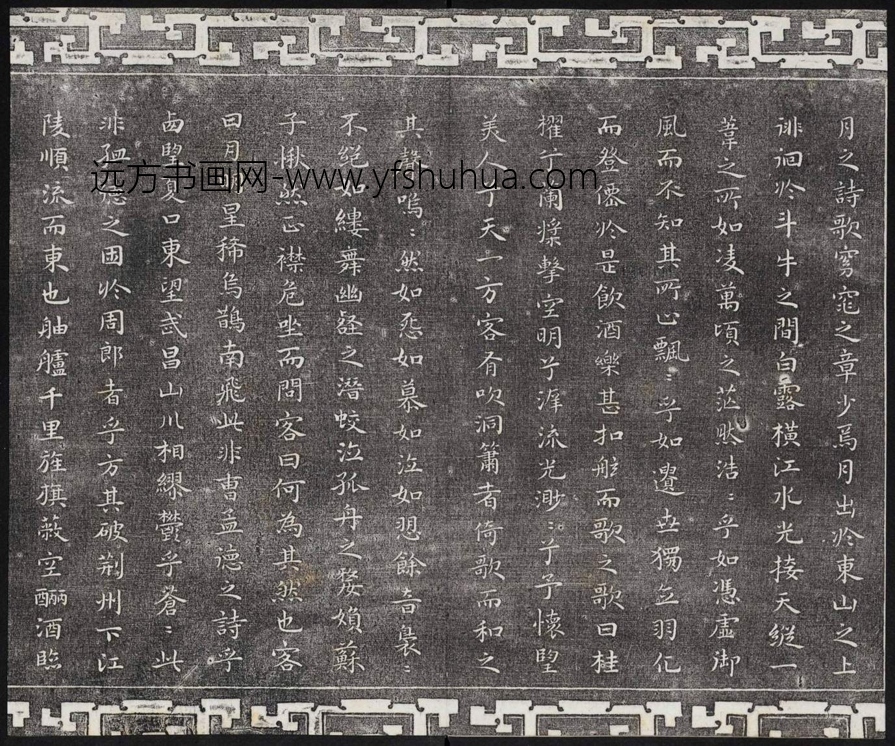 月之詩歌窈窕之章少焉月出於東山之上
徘徊於斗牛之間白露橫江水光接天縱一
葦之所如凌萬頃之茫然浩〻乎如憑虛御
風而不知其所止飄〻乎如遺世獨立羽化
而登僊於是飲酒樂甚扣舷而歌之歌曰桂
櫂兮蘭槳擊空明兮泝流光渺〻兮予懷望
美人兮天一方客有吹洞簫者倚歌而和之
其聲嗚〻然如怨如慕如泣如愬餘音裊〻
不絕如縷舞幽壑之潛蛟泣孤舟之嫠婦蘇
子愀然正襟危坐而問客曰何為其然也客
曰月明星稀烏鵲南飛此非曹孟德之詩乎
西望夏口東望武昌山川相繆鬱乎蒼〻此
非孟德之困於周郎者乎方其破荊州下江
陵順流而東也舳艫千里旌旗蔽空釃酒臨
远方书画网-www.yfshuhua.com